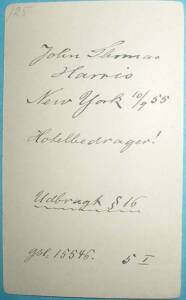 125
John Thomas
Harris
New York 10/9 55
Hotelbedrager!
Udbragt § 16
gsl. 15546. 5 I